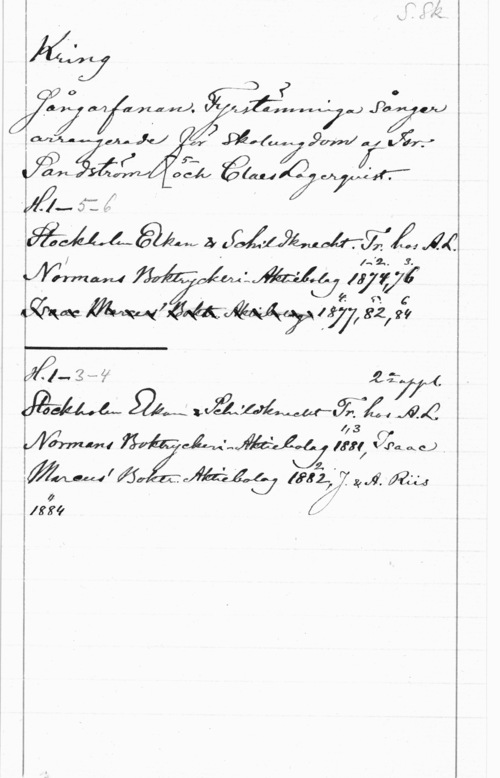 S. Sk
Kring
Sångarfanan. Fyrstämmiga sånger
arrangerade för skolungdom af Isr.
Sandström [och Claes Lagerquist.
H. 1-5-6
Stockholm Elkan & Schildknecht. Tr. hos A. L.
1-2. 3.
Normans Boktryckeri-Aktiebolag 1874, 76
4. 5. 6
Isaac Marcus' Boktr. Aktiebolag 1877, 82, 84
H. 1-3-4
2:a uppl.
Stockholm Elkan & Schildknecht Tr. hos A. L.
1,3
Normans Boktryckeri-Aktiebolag 1881, Isaac
2
Marcus' Boktr. Aktiebolag 1882, J. & A. Riis
1884